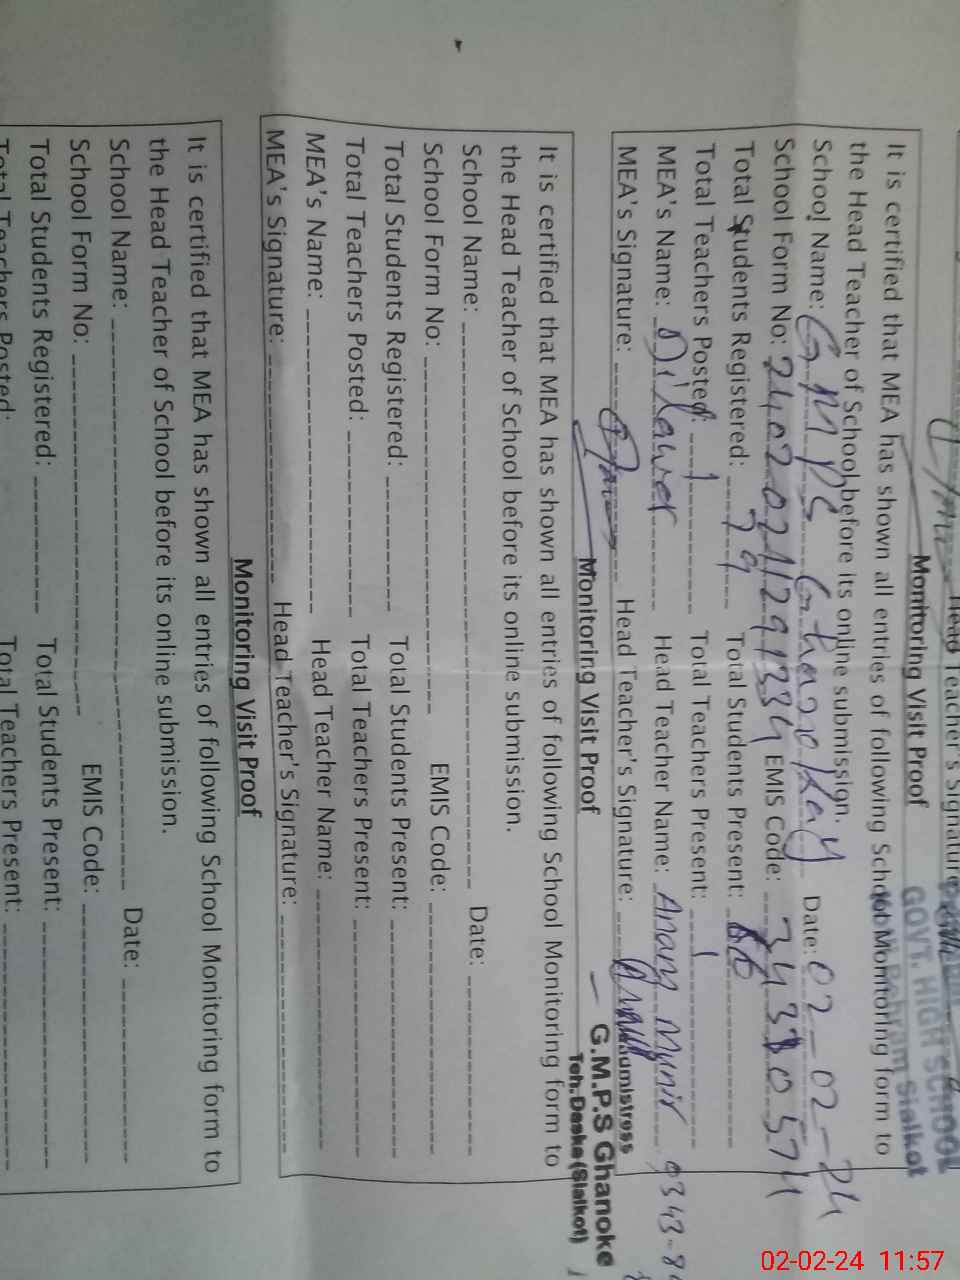 Head Teacher's Signature
GOVT. HIGH SCHOOL
Sialkot
Monitoring Visit Proof
It is certified that MEA has shown all entries of following School Monitoring form to
the Head Teacher of School before its online submission.
School Name: GMPS Ghanokay Date: 02-02-24
School Form No: EMIS Code:
Total Students Registered: 79 Total Students Present:
Total Teachers Posted: 1 Total Teachers Present: 1
MEA's Name: Dilawer Head Teacher Name: Anam Munir 0343-8
MEA's Signature: Head Teacher's Signature:
G.M.P.S Ghanoke
Teh. Daska (Sialkot)
Monitoring Visit Proof
It is certified that MEA has shown all entries of following School Monitoring form to
the Head Teacher of School before its online submission.
School Name: Date:
School Form No: EMIS Code:
Total Students Registered: Total Students Present:
Total Teachers Posted: Total Teachers Present:
MEA's Name: Head Teacher Name:
MEA's Signature: Head Teacher's Signature:
Monitoring Visit Proof
It is certified that MEA has shown all entries of following School Monitoring form to
the Head Teacher of School before its online submission.
School Name: Date:
School Form No: EMIS Code:
Total Students Registered: Total Students Present:
Total Teachers Posted: Total Teachers Present:
02-02-24 11:57